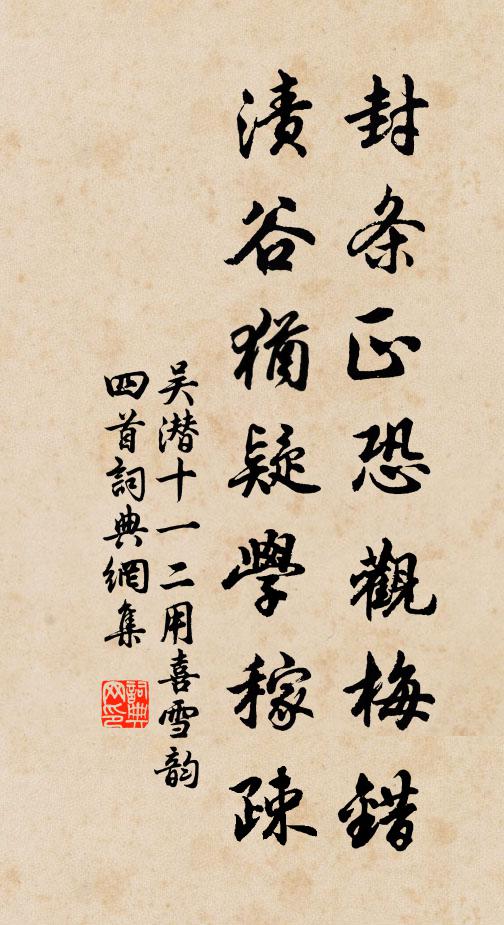 封条正恐觀梅錯
漬谷猶疑學稼疎
吴潜十一二用喜雪韵
四首詞典網集
詞典网印